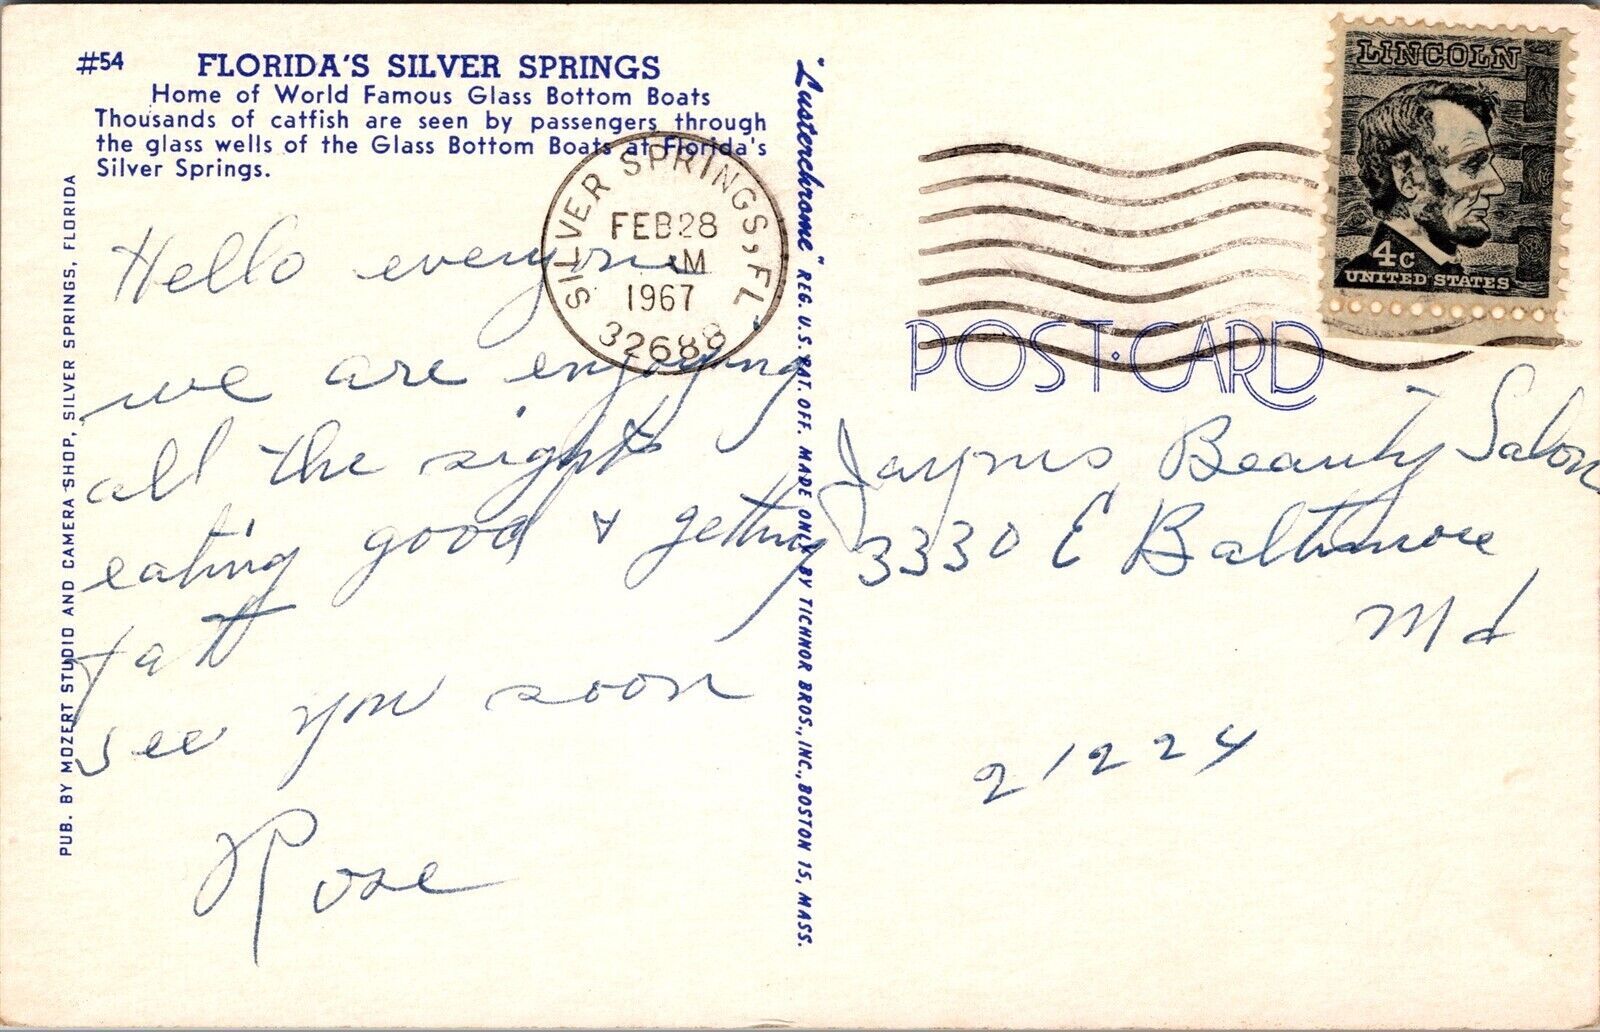 #54 FLORIDA'S SILVER SPRINGS
Home of World Famous Glass Bottom Boats
Thousands of catfish are seen by passengers through
the glass wells of the Glass Bottom Boats at Florida's
Silver Springs.
PUB. BY MOZERT STUDIO AND CAMERA SHOP, SILVER SPRINGS, FLORIDA
SILVER SPRINGS, FL
FEB 28
M
1967
32688
Hello everyone
we are enjoying
all the sights
eating good & getting
fat
see you soon
Rose
"Lusterchrome" REG. U.S. PAT. OFF. MADE ONLY BY TICHNOR BROS., INC., BOSTON 15, MASS.
LINCOLN
4c
UNITED STATES
POST·CARD
Beauty Salon
3330 E Baltimore
Md
21224